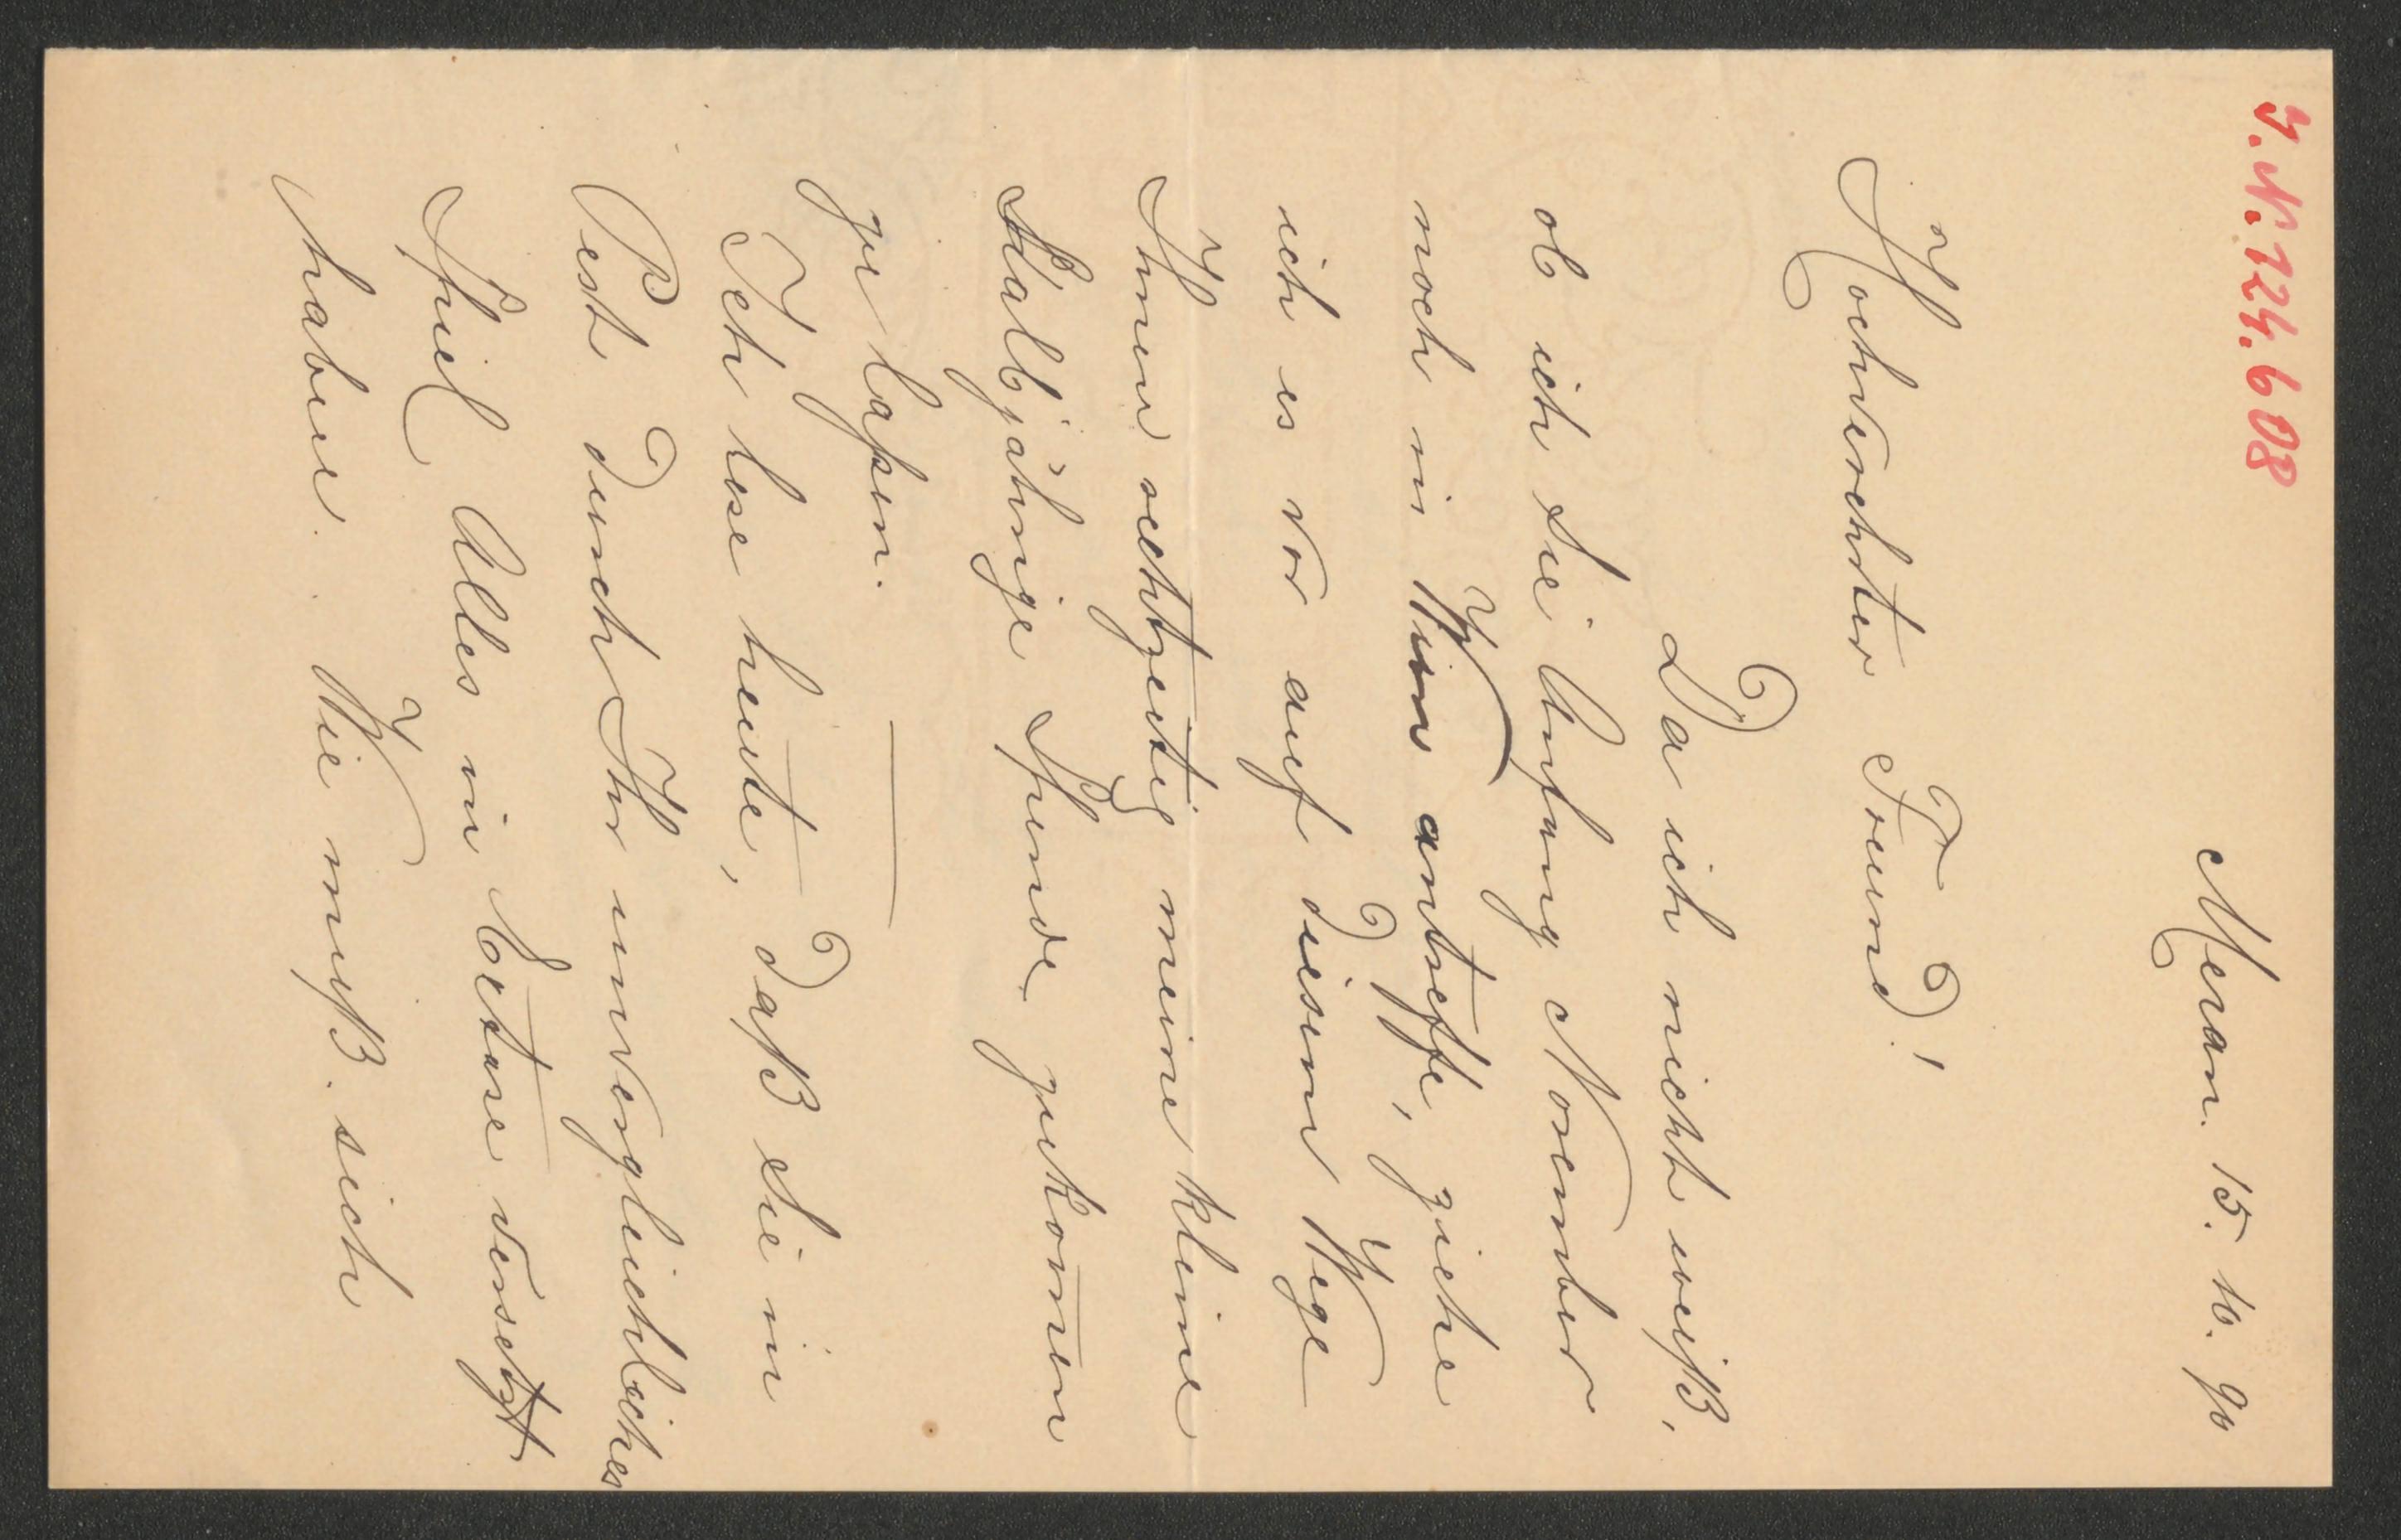 I.N. 124.608
Meran. 15. 10. 90
Hochverehrter Freund!
Da ich nicht weiß,
ob ich Sie Anfang November
noch in Wien antreffe, ziehe
ich es vor auf diesem Wege
Ihnen rechtzeitig meine kleine
halbjährige Spende zukom̅en
zu laßen.
Ich lese heute, daß Sie in
Pest durch Ihr unvergleichliches
Spiel Alles in Extase versetzt
haben. Wie muß sich